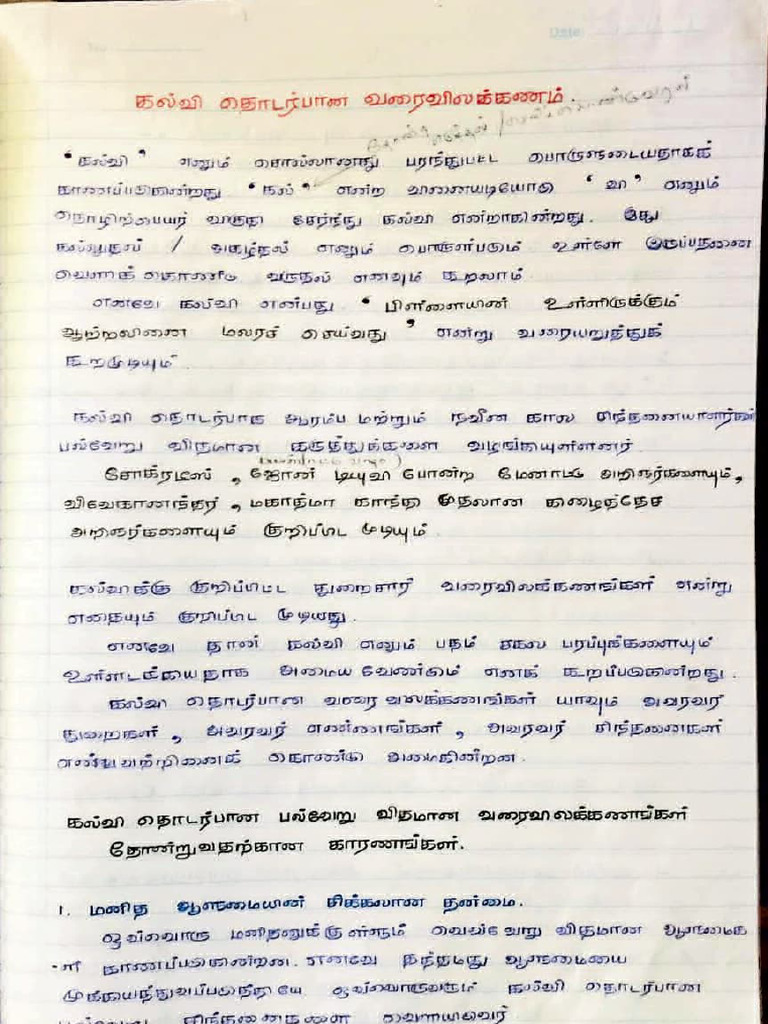 Date:
கல்வி தொடர்பான வரைவிலக்கணம்
"கல்வி" எனும் சொல்லானது பரந்துபட்ட பொருளுடையதாகக்
காணப்படுகின்றது "கல்" என்ற வினையடியோடு 'வி' எனும்
தொழிற்பெயர் விகுதி சேர்ந்து கல்வி என்றாகின்றது. இது
கல்லுதல் / அகழ்தல் எனும் பொருள்படும் உள்ளே இருப்பதனை
வெளிக் கொண்டு வருதல் எனவும் கூறலாம்
எனவே கல்வி என்பது "பிள்ளையின் உள்ளிருக்கும்
ஆற்றலினை மலரச் செய்வது" என்று வரையறுத்துக்
கூறமுடியும்.
கல்வி தொடர்பாக ஆரம்ப மற்றும் நவீன கால சிந்தனையாளர்கள்
பல்வேறு விதமான கருத்துக்களை வழங்கியுள்ளனர்.
சோக்ரடீஸ், ஜோன் டியுவி போன்ற மேனாட்டு அறிஞர்களையும்,
விவேகானந்தர், மகாத்மா காந்தி முதலான கிழைத்தேச
அறிஞர்களையும் குறிப்பிட முடியும்.
கல்விக்கு குறிப்பிட்ட துறைசார் வரைவிலக்கணங்கள் என்று
எதையும் குறிப்பிட முடியாது.
எனவே தான் கல்வி எனும் பதம் சகல பரப்புக்களையும்
உள்ளடக்கியதாக அமைய வேண்டும் எனக் கூறப்படுகின்றது.
கல்வி தொடர்பான வரைவிலக்கணங்கள் யாவும் அவரவர்
துறைகள், அவரவர் எண்ணங்கள், அவரவர் சிந்தனைகள்
என்பவற்றினைக் கொண்டு அமைகின்றன.
கல்வி தொடர்பான பல்வேறு விதமான வரைவிலக்கணங்கள்
தோன்றுவதற்கான காரணங்கள்.
1. மனித ஆளுமையின் சிக்கலான தன்மை.
ஒவ்வொரு மனிதனுக்குள்ளும் வெவ்வேறு விதமான ஆளுமைக
-ள் காணப்படுகின்றன. எனவே தத்தமது ஆளுமையை
முக்கியத்துவப்படுத்தியே ஒவ்வொருவரும் கல்வி தொடர்பான
பல்வேறு சிந்தனைகளை